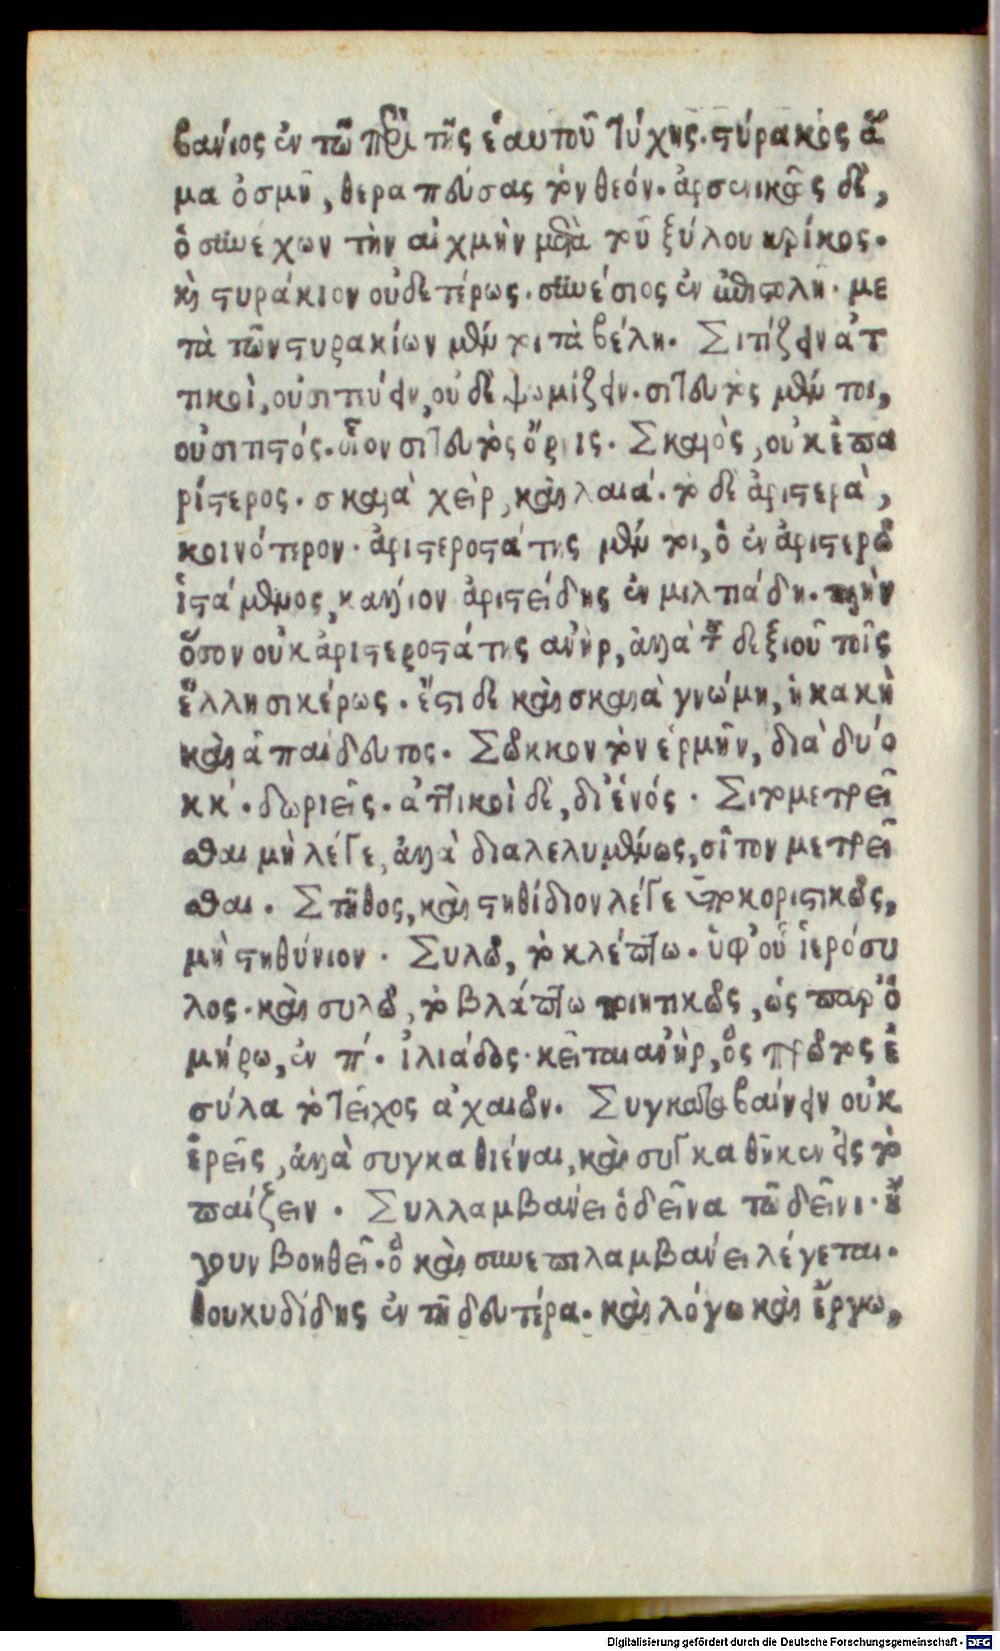 βανίος ἐν τῶ περὶ τῆς ἑαυτοῦ τύχης. στύρακος ἅ
μα ὀσμῆ, θεραπεύσας τὸν θεόν. ἀρσενικῶς δὲ,
ὁ συνέχων τὴν αἰχμὴν μετὰ τοῦ ξύλου κρίκος.
κὴ στυράκιον οὐδετέρως. συνέσιος ἐν ἐπιστολῆ. με
τὰ τῶν στυρακίων μέν τοι τὰ βέλη. Σιτίζειν ἀτ
τικοὶ, οὐ σιτεύειν, οὐ δὲ ψωμίζειν. σιτευτὸς μέν τοι,
οὐ σιτιστός. οἷον σιτευτὸς ὄρνις. Σκαιὸς, οὐκ ἐπα
ρίστερος. σκαιὰ χεὶρ, καὶ λαιά. τὸ δὲ ἀριστερὰ,
κοινότερον. ἀριστεροστάτης μέν τοι, ὁ ἐν ἀριστερῶ
ἱστάμενος, κάλλιον ἀριστείδης ἐν μιλτιάδη. πλὴν
ὅσον οὐκ ἀριστεροστάτης ἀνὴρ, ἀλλὰ τοῦ δεξιοῦ τοῖς
ἕλλησι κέρως. ἔστι δὲ καὶ σκαιὰ γνώμη, ἡ κακὴ
καὶ ἀπαίδευτος. Σῶκκον τὸν ἑρμῆν, διὰ δύο
κκ. δωριεῖς. ἀττικοὶ δὲ, δι' ἑνός. Σιτομετρεῖ
σθαι μὴ λέγε, ἀλλὰ διαλελυμένως, σῖτον μετρεῖ
σθαι. Στῆθος, καὶ στηθίδιον λέγε ὑποκοριστικῶς,
μὴ στηθύνιον. Συλῶ, τὸ κλέπτω. ὑφ' οὗ ἱερόσυ
λος. καὶ συλῶ, τὸ βλάπτω ποιητικῶς, ὡς παρ' ὁ
μήρω, ἐν π. ἰλιάδος. κεῖται ἀνὴρ, ὃς πρῶτος ἐ
σύλα τὸ τεῖχος ἀχαιῶν. Συγκαταβαίνειν οὐκ
ἐρεῖς, ἀλλὰ συγκαθιέναι, καὶ συγκαθῆκεν εἰς τὸ
παίζειν. Συλλαμβάνει ὁ δεῖνα τῶ δεῖνι. ἤ
γουν βοηθεῖ. ὃ καὶ συνεπιλαμβάνει λέγεται.
θουκυδίδης ἐν τῆ δευτέρα. καὶ λόγω καὶ ἔργω,
Digitalisierung gefördert durch die Deutsche Forschungsgemeinschaft - DFG